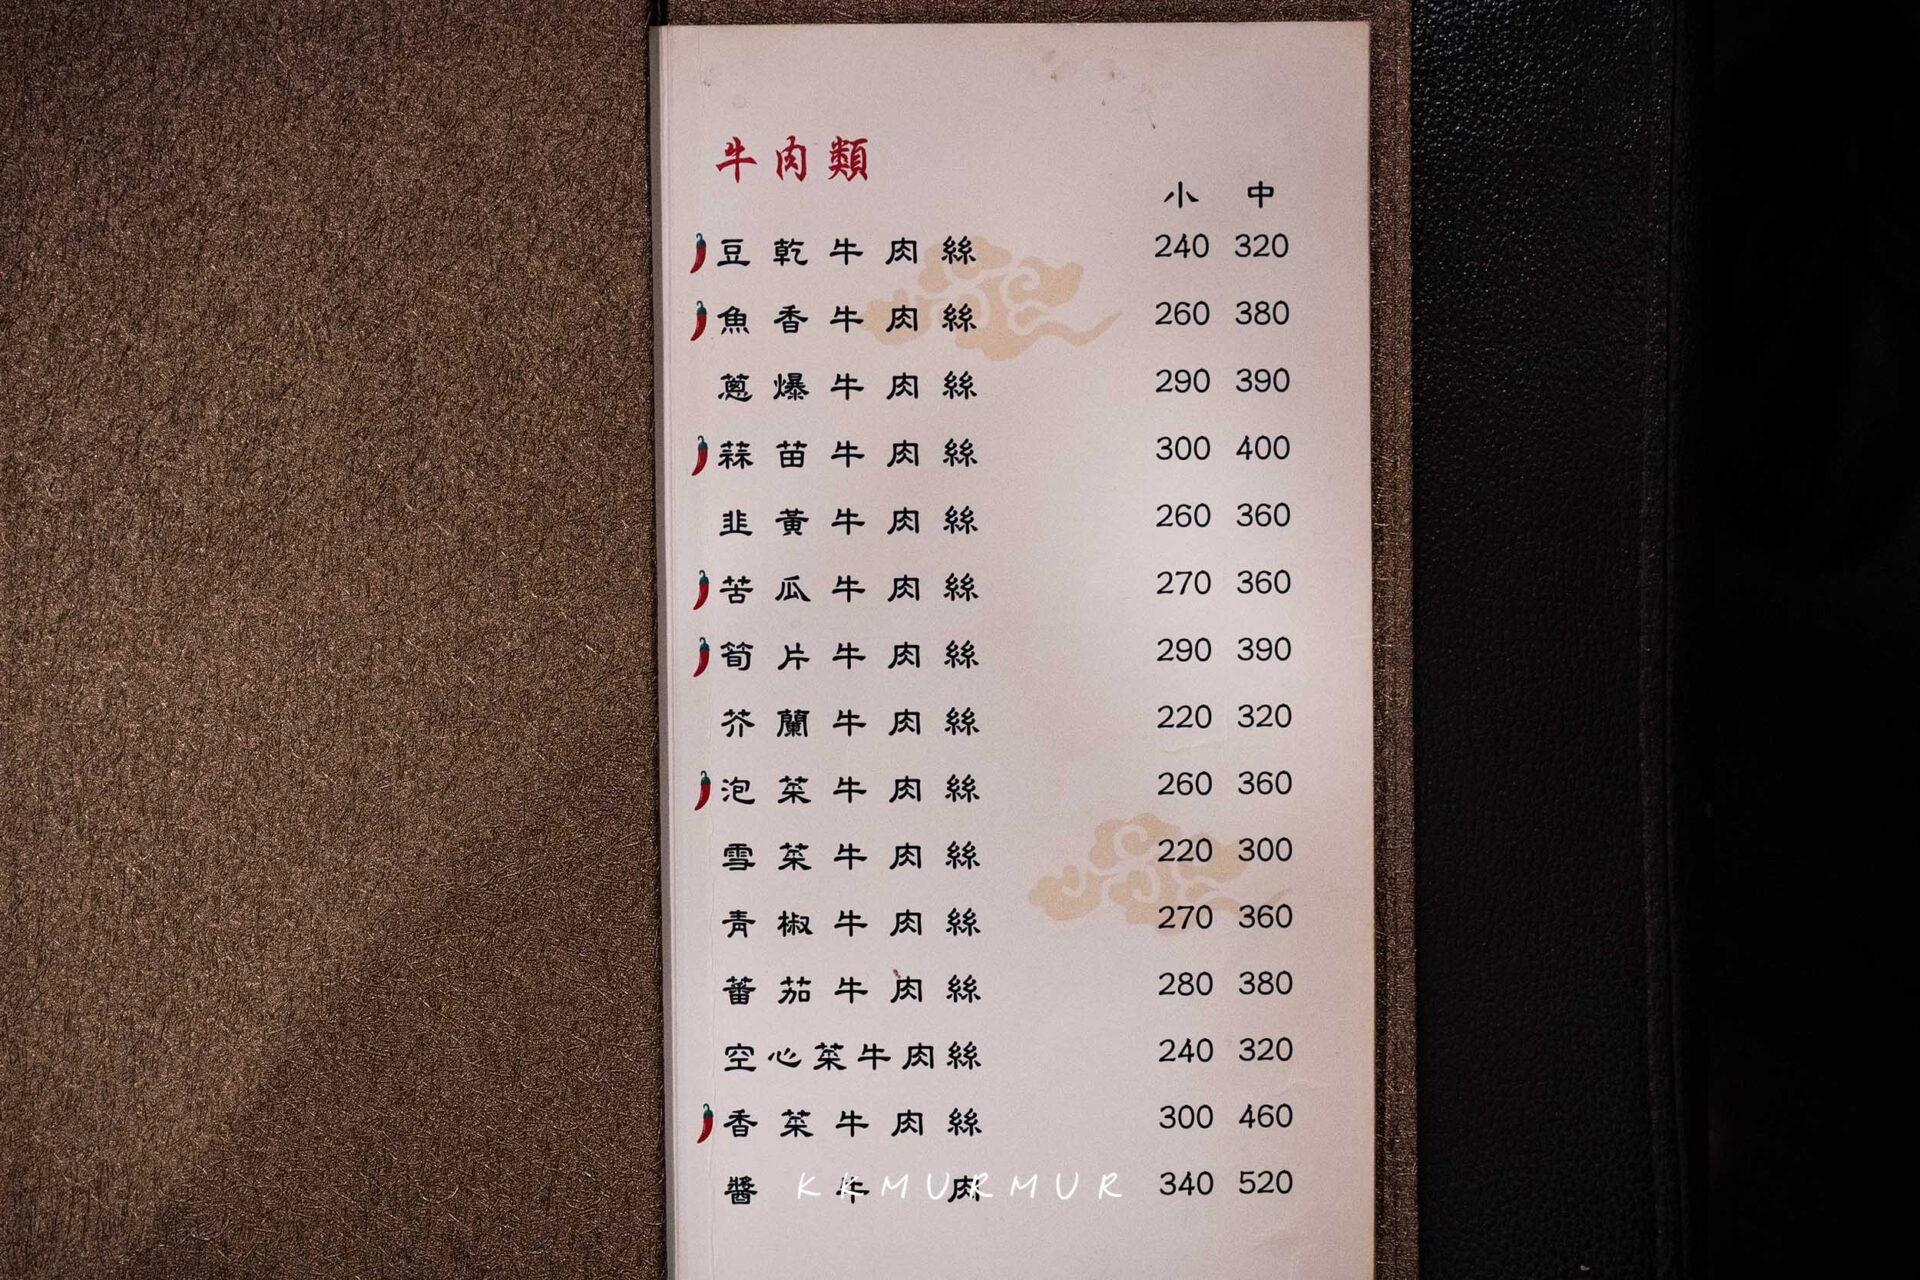 牛肉類
小 中
豆乾牛肉絲 240 320
魚香牛肉絲 260 380
蔥爆牛肉絲 290 390
蒜苗牛肉絲 300 400
韭黃牛肉絲 260 360
苦瓜牛肉絲 270 360
筍片牛肉絲 290 390
芥蘭牛肉絲 220 320
泡菜牛肉絲 260 360
雪菜牛肉絲 220 300
青椒牛肉絲 270 360
蕃茄牛肉絲 280 380
空心菜牛肉絲 240 320
香菜牛肉絲 300 460
醬牛肉 340 520
KKMURMUR